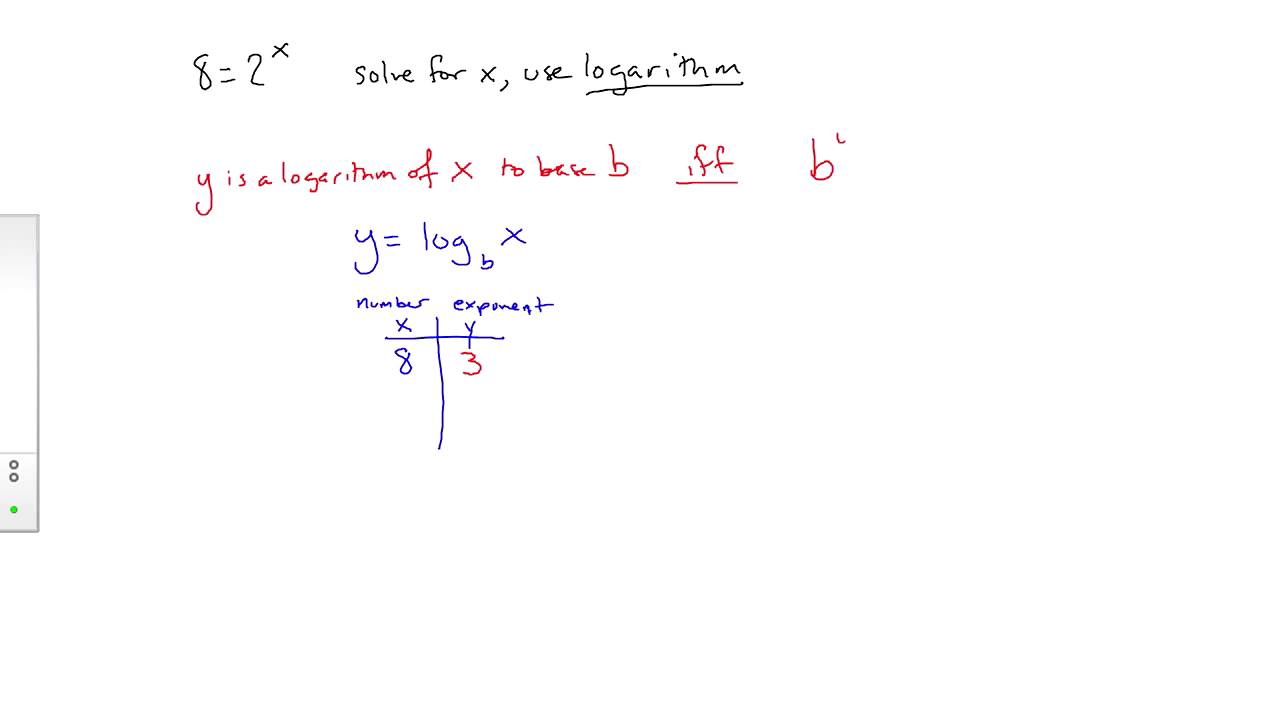 8 = 2^x solve for x, use logarithm
y is a logarithm of x to base b iff b
y = log_b x
number exponent
x y
8 3